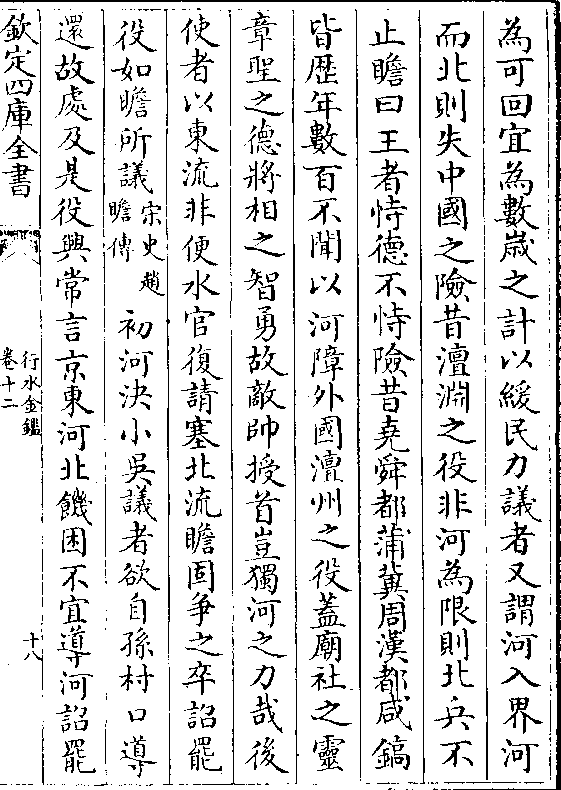 為可回宜為數嵗之計以緩民力議者又謂河入界河
而北則失中國之險昔澶淵之役非河為限則北兵不
止瞻曰王者恃德不恃險昔堯舜都蒲冀周漢都咸鎬
皆歴年數百不聞以河障外國澶州之役蓋廟社之靈
章聖之德將相之智勇故敵帥授首豈獨河之力哉後
使者以東流非便水官復請塞北流瞻固爭之卒詔罷
役如瞻所議宋史趙瞻傳 初河決小吳議者欲自孫村口導
還故處及是役興常言京東河北饑困不宜導河詔罷
欽定四庫全書
行水金鑑
卷十二
十八